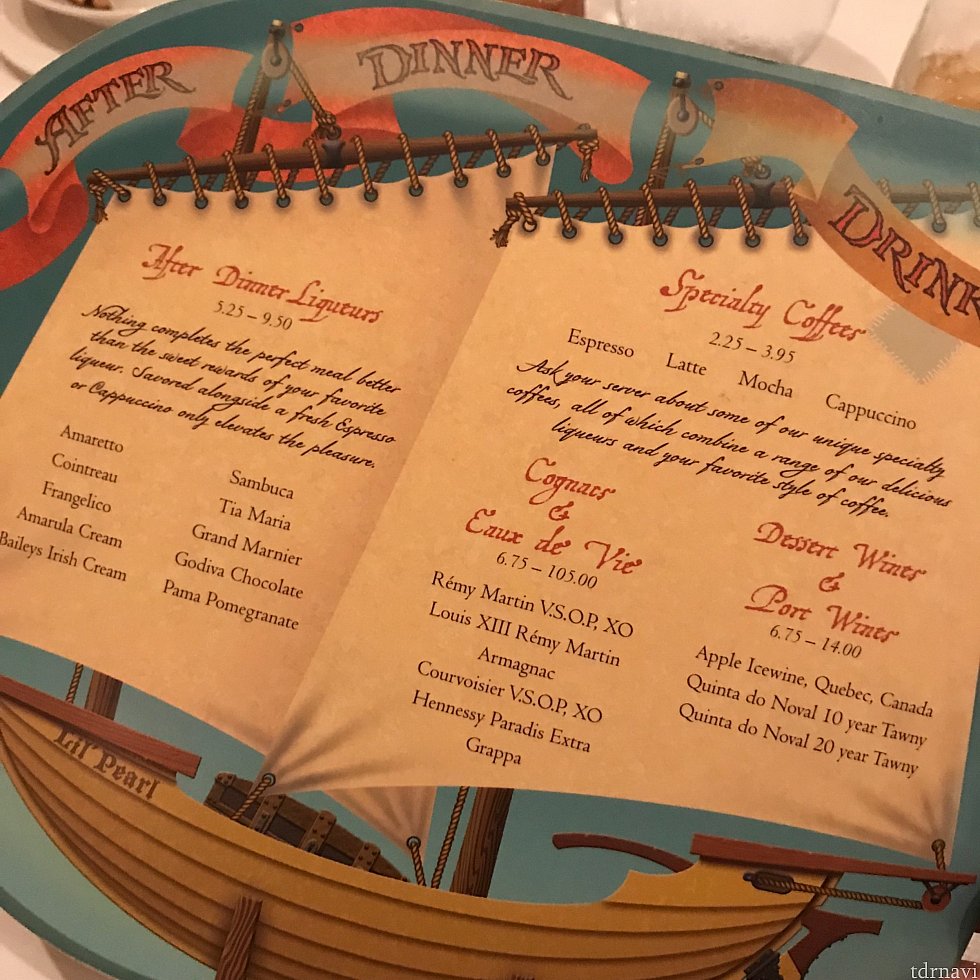 AFTER DINNER DRINK
After Dinner Liqueurs
5.25 – 9.50
Nothing completes the perfect meal better
than the sweet rewards of your favorite
liqueur. Savored alongside a fresh Espresso
or Cappuccino only elevates the pleasure.
Amaretto
Cointreau
Frangelico
Amarula Cream
Baileys Irish Cream
Sambuca
Tia Maria
Grand Marnier
Godiva Chocolate
Pama Pomegranate
Specialty Coffees
2.25 – 3.95
Espresso Latte Mocha Cappuccino
Ask your server about some of our unique specialty
coffees, all of which combine a range of our delicious
liqueurs and your favorite style of coffee.
Cognacs
&
Eaux de Vie
6.75 – 105.00
Rémy Martin V.S.O.P, XO
Louis XIII Rémy Martin
Armagnac
Courvoisier V.S.O.P, XO
Hennessy Paradis Extra
Grappa
Dessert Wines
&
Port Wines
6.75 – 14.00
Apple Icewine, Quebec, Canada
Quinta do Noval 10 year Tawny
Quinta do Noval 20 year Tawny
Lil' Pearl
tdrnavi